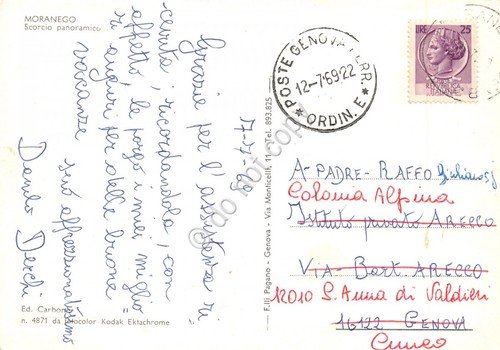 MORANEGO
Scorcio panoramico
17-7-69
Grazie per l'assistenza ri
cevuta; ricordandola, con
affetto, le porgo i miei miglio
ri auguri per delle buone
vacanze
suo affezionatissimo
Danilo Derchi
Ed. Carbone
n. 4871 da Diocolor Kodak Ektachrome
F.lli Pagano - Genova - Via Monticelli, 11 - Tel. 893.825
POSTE GENOVA FERR.
12-7-69.22
* ORDIN. E *
LIRE 25
A-PADRE-RAFFO Giuliano S.J
Colonia Alpina
Istituto privato ARECCO
VIA-Bart. ARECCO
12010 S. Anna di Valdieri
16122 GENOVA
Cuneo
do not copy